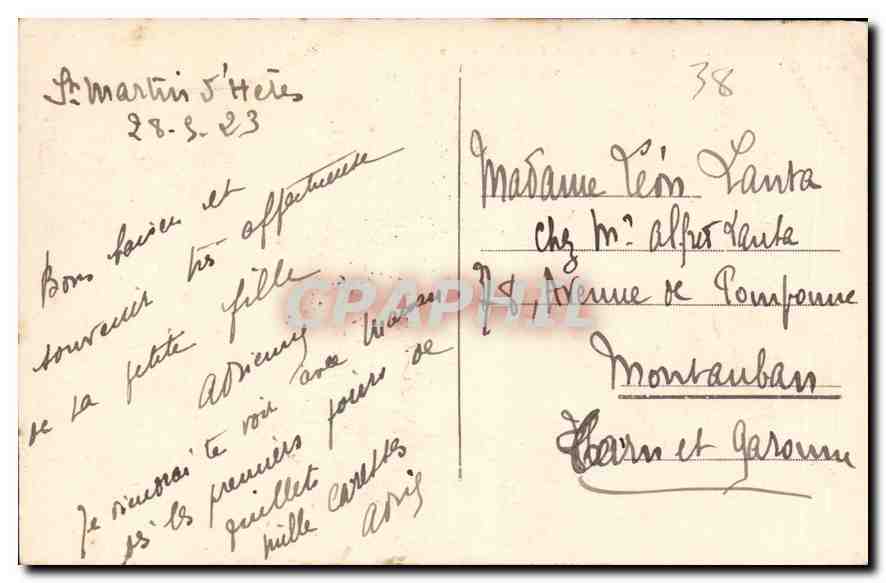 St. Martin d'Hères
28-5-23
Bons baisers et
souvenir très affectueuse
de ta petite fille
Adrienne
Je viendrai te voir avec Maman
dès les premiers jours de
Juillet
mille caresses
Adri
38
Madame Léon Lanta
chez Mr Alfred Lanta
78, Avenue de Pomponne
Montauban
Tarn et Garonne
CPAPHIL